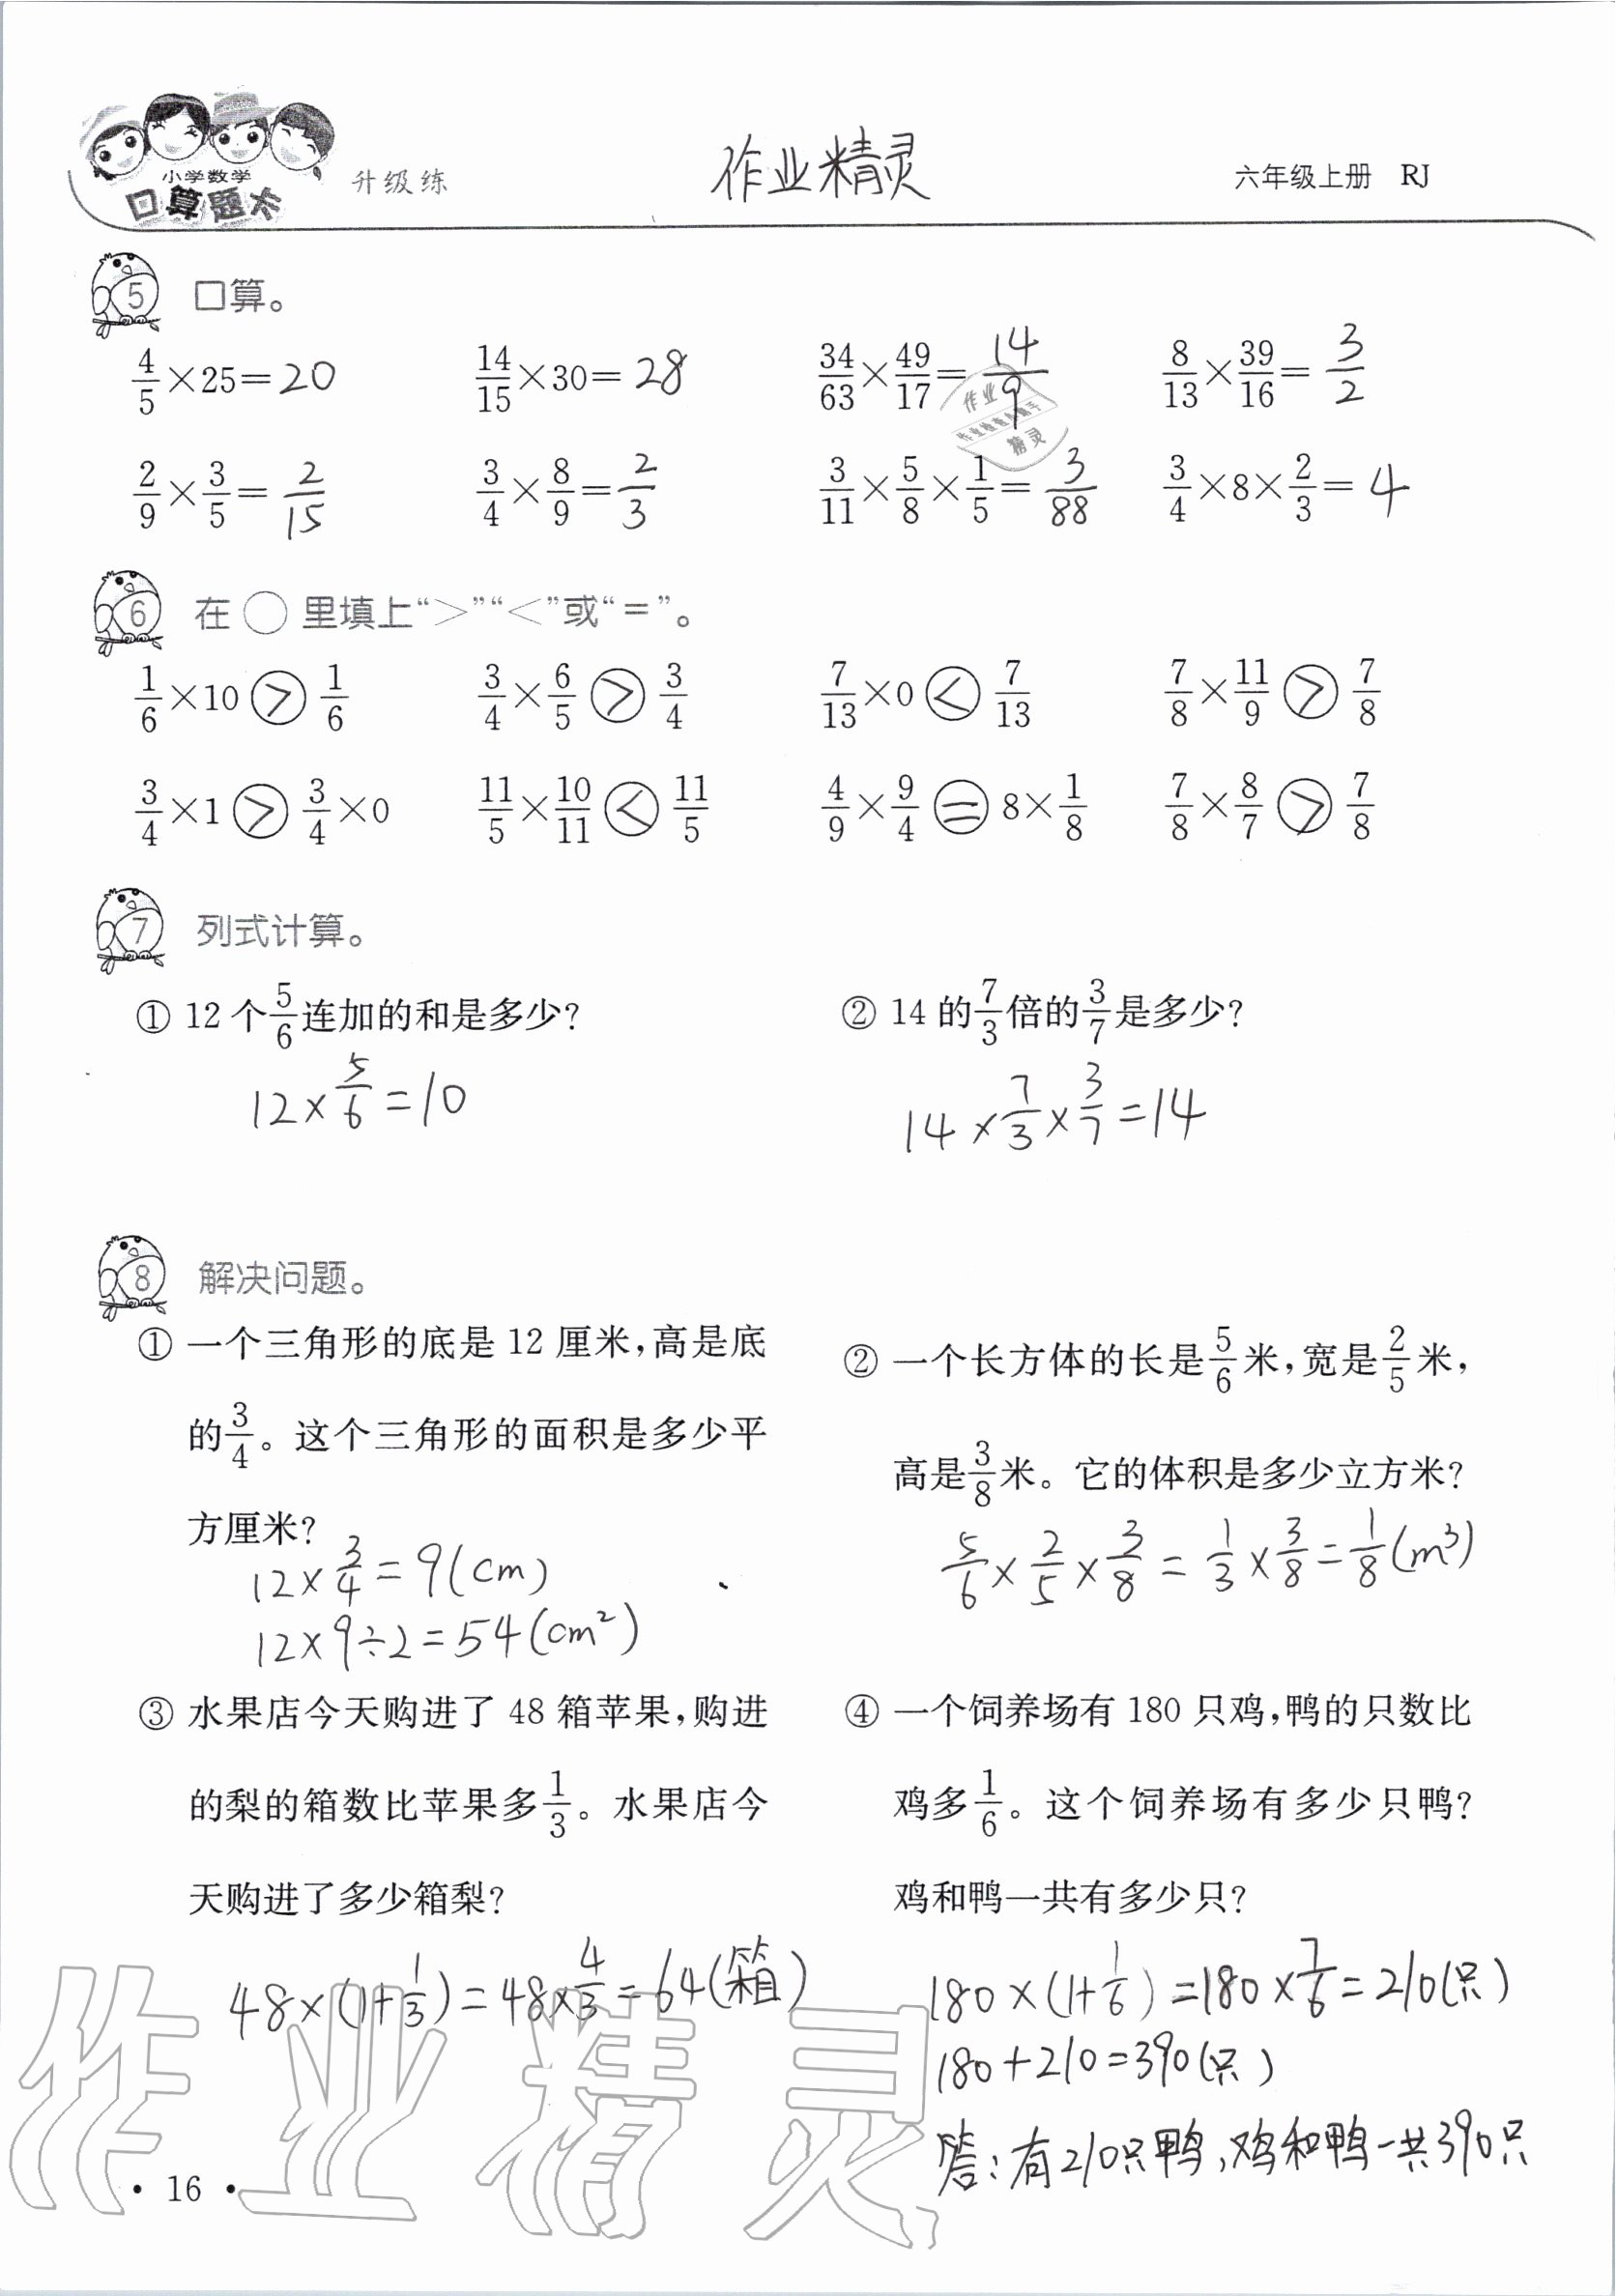 小学数学
口算题卡 升级练 作业精灵 六年级上册 RJ
5 口算。
4/5×25=20 14/15×30=28 34/63×49/17=14/9 8/13×39/16=3/2
2/9×3/5=2/15 3/4×8/9=2/3 3/11×5/8×1/5=3/88 3/4×8×2/3=4
6 在○里填上“>”“<”或“=”。
1/6×10>1/6 3/4×6/5>3/4 7/13×0<7/13 7/8×11/9>7/8
3/4×1>3/4×0 11/5×10/11<11/5 4/9×9/4=8×1/8 7/8×8/7>7/8
7 列式计算。
① 12个5/6连加的和是多少?
12×5/6=10
② 14的7/3倍的3/7是多少?
14×7/3×3/7=14
8 解决问题。
① 一个三角形的底是12厘米,高是底
的3/4。这个三角形的面积是多少平
方厘米?
12×3/4=9(cm)
12×9÷2=54(cm²)
② 一个长方体的长是5/6米,宽是2/5米,
高是3/8米。它的体积是多少立方米?
5/6×2/5×3/8=1/3×3/8=1/8(m³)
③ 水果店今天购进了48箱苹果,购进
的梨的箱数比苹果多1/3。水果店今
天购进了多少箱梨?
48×(1+1/3)=48×4/3=64(箱)
④ 一个饲养场有180只鸡,鸭的只数比
鸡多1/6。这个饲养场有多少只鸭?
鸡和鸭一共有多少只?
180×(1+1/6)=180×7/6=210(只)
180+210=390(只)
答:有210只鸭,鸡和鸭一共390只
作业精灵
· 16 ·